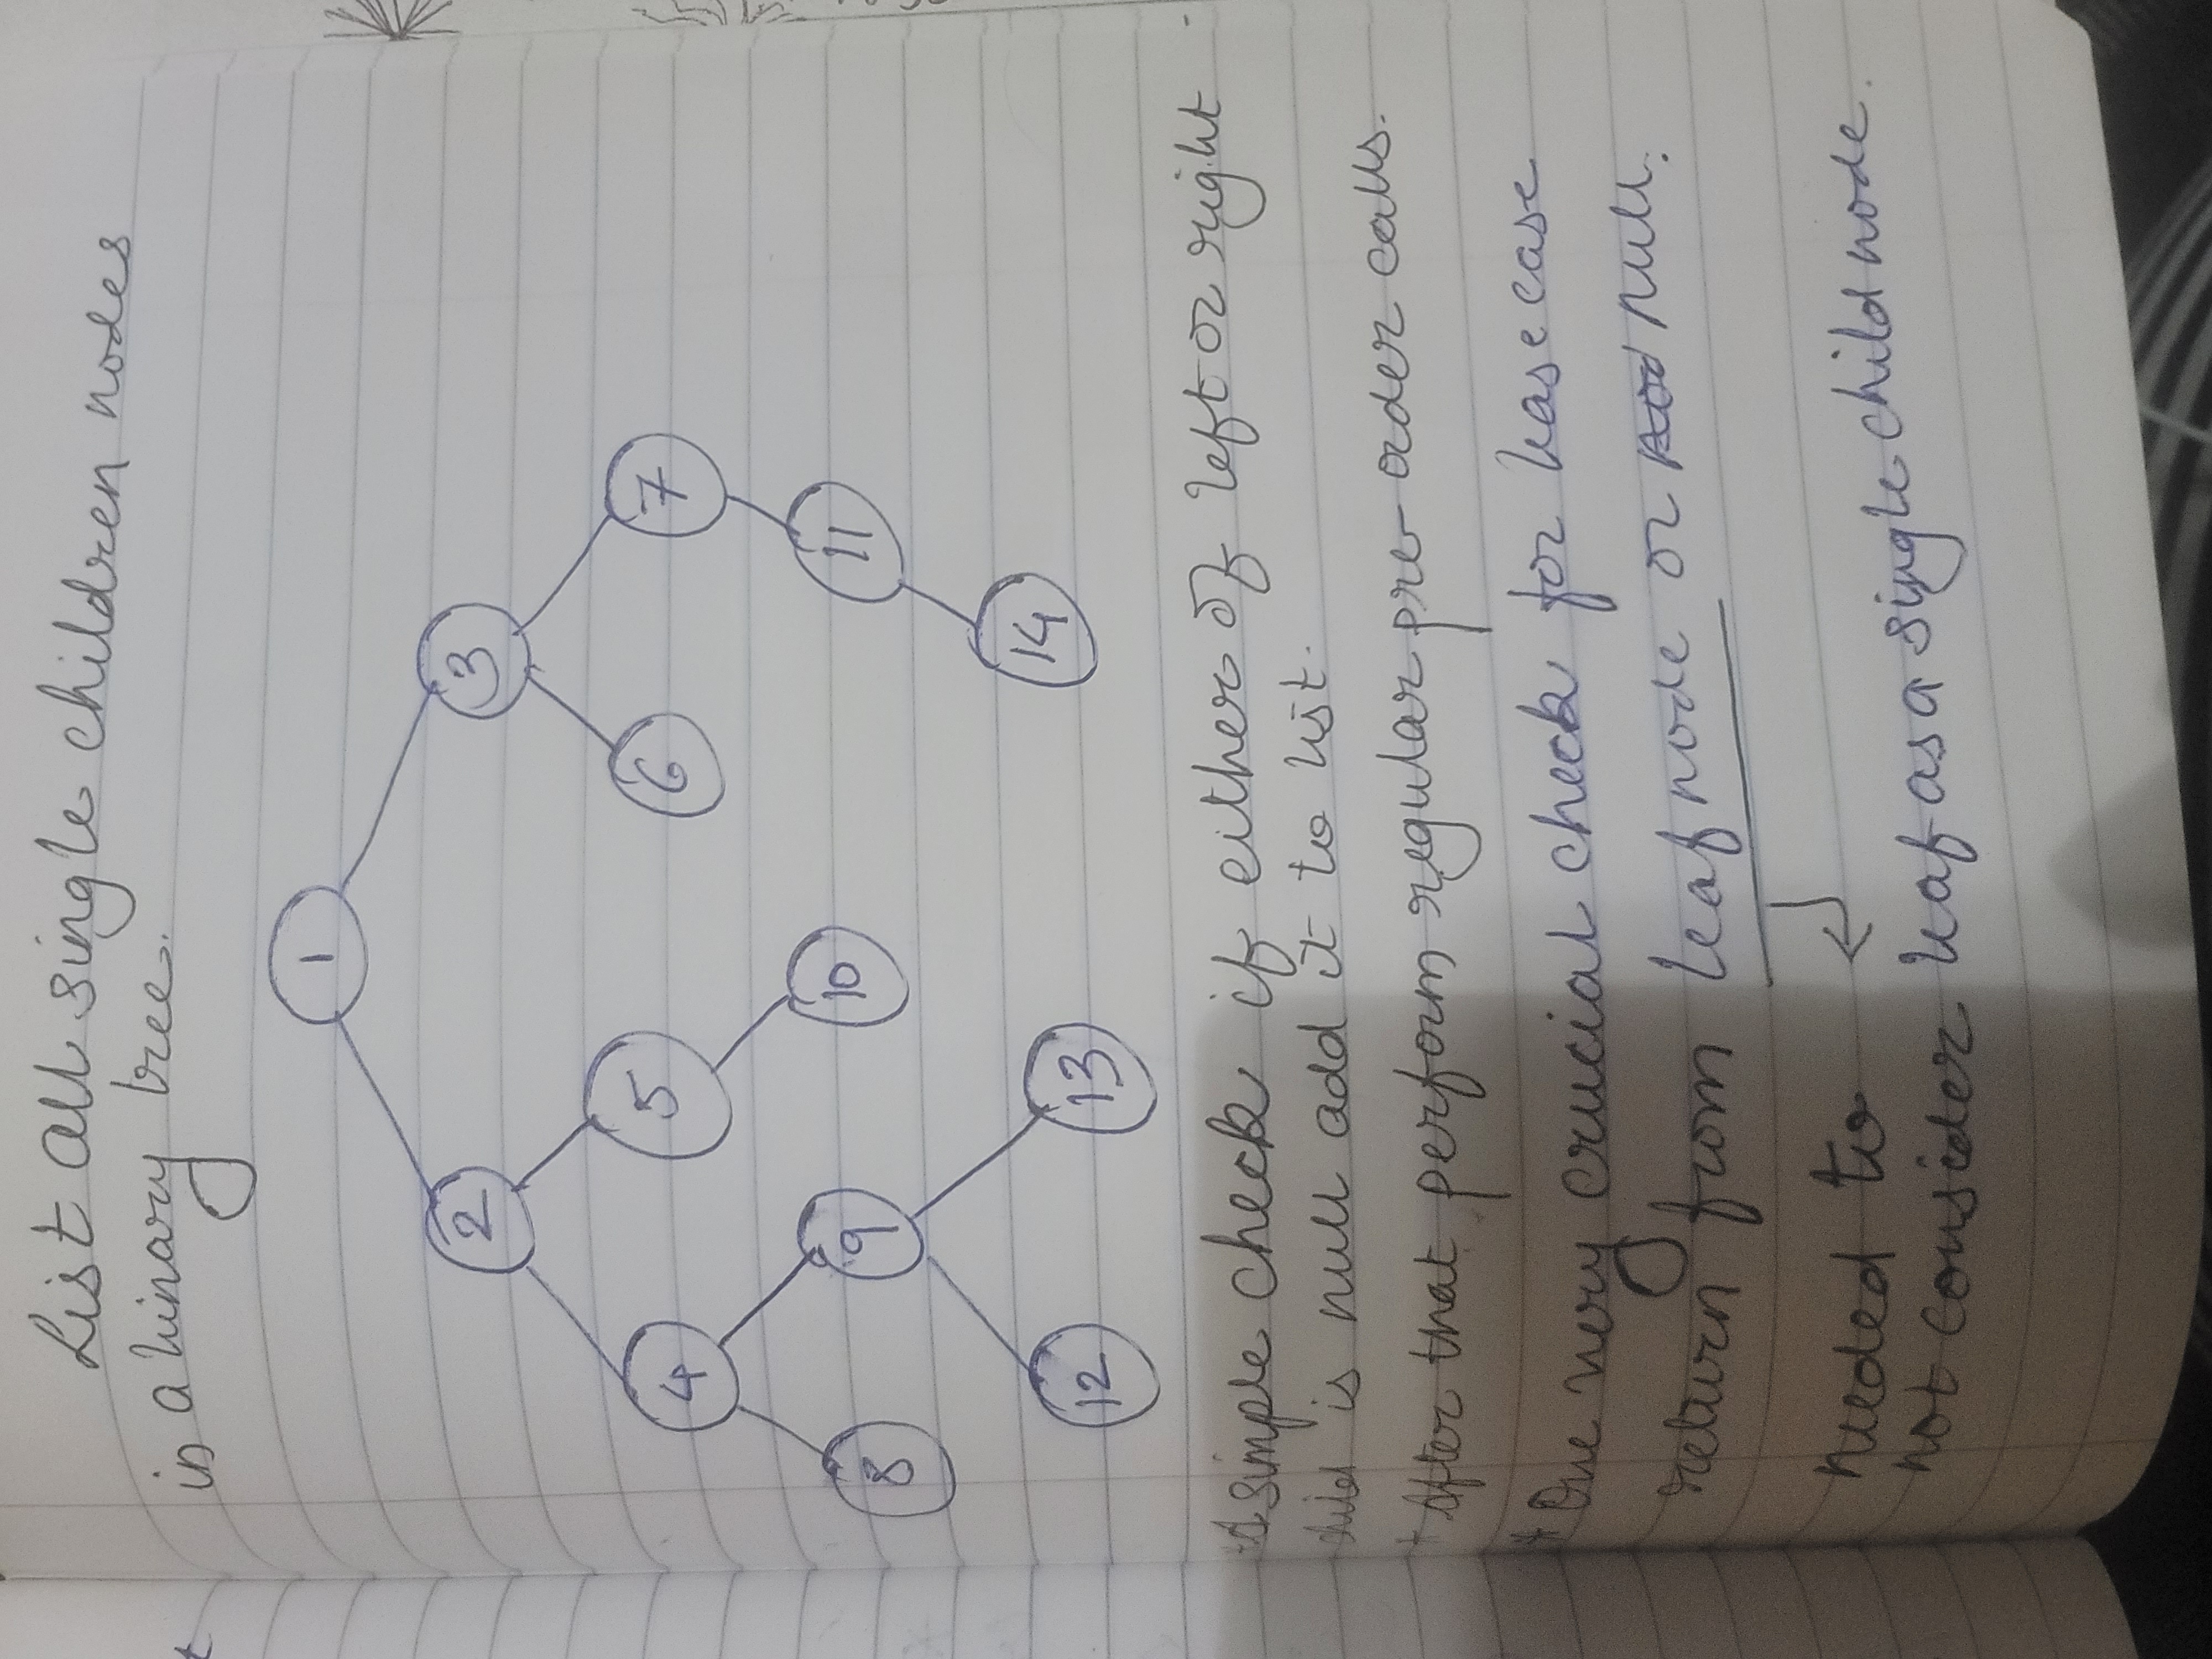 List all single children nodes
in a binary tree.
1
2 3
4 5 6 7
8 9 10 11
12 13 14
* A simple check if either of left or right
child is null add it to list.
* After that perform regular pre-order calls.
* One very crucial check for base case
return from leaf node or null.
needed to
not consider leaf as a single child node.